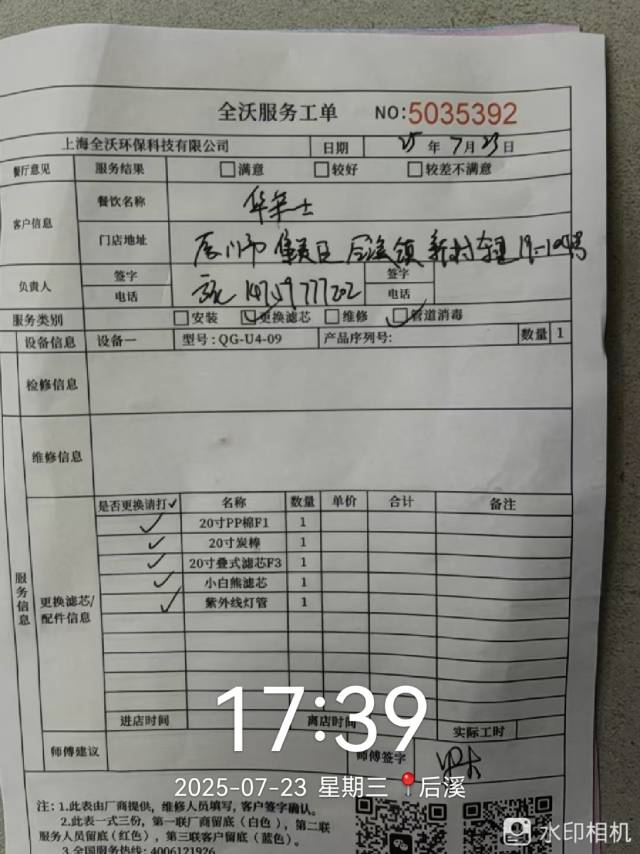 全沃服务工单 NO:5035392
上海全沃环保科技有限公司 日期 25 年 7 月 23 日
餐厅意见 服务结果 □满意 □较好 □较差不满意
客户信息 餐饮名称 华莱士
门店地址 厦门市 集美区 后溪镇 新村
负责人 签字 签字
电话 电话
服务类别 □安装 ☑更换滤芯 □维修 ☑管道消毒
设备信息 设备一 型号:QG-U4-09 产品序列号: 数量 1
检修信息
维修信息
服务信息
更换滤芯/配件信息
是否更换请打✓ 名称 数量 单价 合计 备注
✓ 20寸PP棉F1 1
✓ 20寸炭棒 1
✓ 20寸叠式滤芯F3 1
✓ 小白熊滤芯 1
✓ 紫外线灯管 1
进店时间 离店时间 实际工时
师傅建议 师傅签字
17:39
2025-07-23 星期三 后溪
注:1.此表由厂商提供,维修人员填写,客户签字确认。
2.此表一式三份,第一联厂商留底(白色),第二联
服务人员留底(红色),第三联客户留底(蓝色)。
3.全国服务热线:4006121926
水印相机